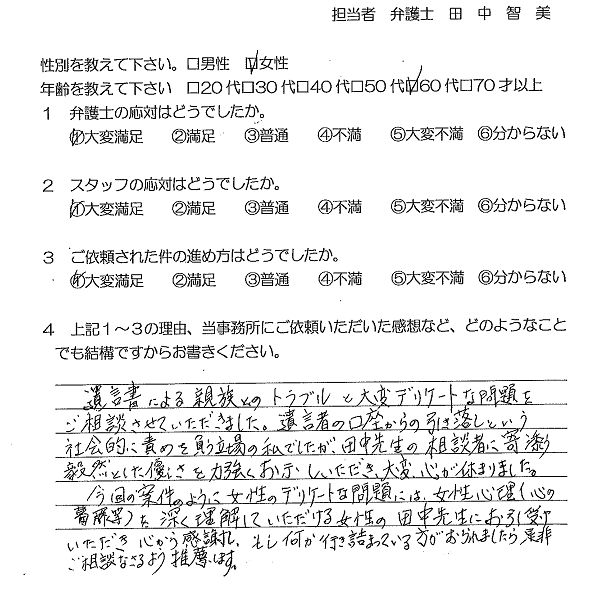 担当者 弁護士 田中智美
性別を教えて下さい。☐男性 ☑女性
年齢を教えて下さい ☐20代☐30代☐40代☐50代☑60代☐70才以上
1 弁護士の応対はどうでしたか。
①大変満足 ②満足 ③普通 ④不満 ⑤大変不満 ⑥分からない
2 スタッフの応対はどうでしたか。
①大変満足 ②満足 ③普通 ④不満 ⑤大変不満 ⑥分からない
3 ご依頼された件の進め方はどうでしたか。
①大変満足 ②満足 ③普通 ④不満 ⑤大変不満 ⑥分からない
4 上記1～3の理由、当事務所にご依頼いただいた感想など、どのようなこと
でも結構ですからお書きください。
遺言書による親族とのトラブルと大変デリケートな問題を
ご相談させていただきました。遺言者の口座からの引き落しという
社会的に責めを負う立場の私でしたが、田中先生の相談者に寄添い
毅然とした優しさを力強くお示しいただき、大変、心が休まりました。
今回の案件のように女性のデリケートな問題には、女性心理(心の
葛藤等)を深く理解していただける女性の田中先生にお引受け
いただき心から感謝し、もし何か行き詰まっている方がおられましたら是非
ご相談なさるよう推薦します。